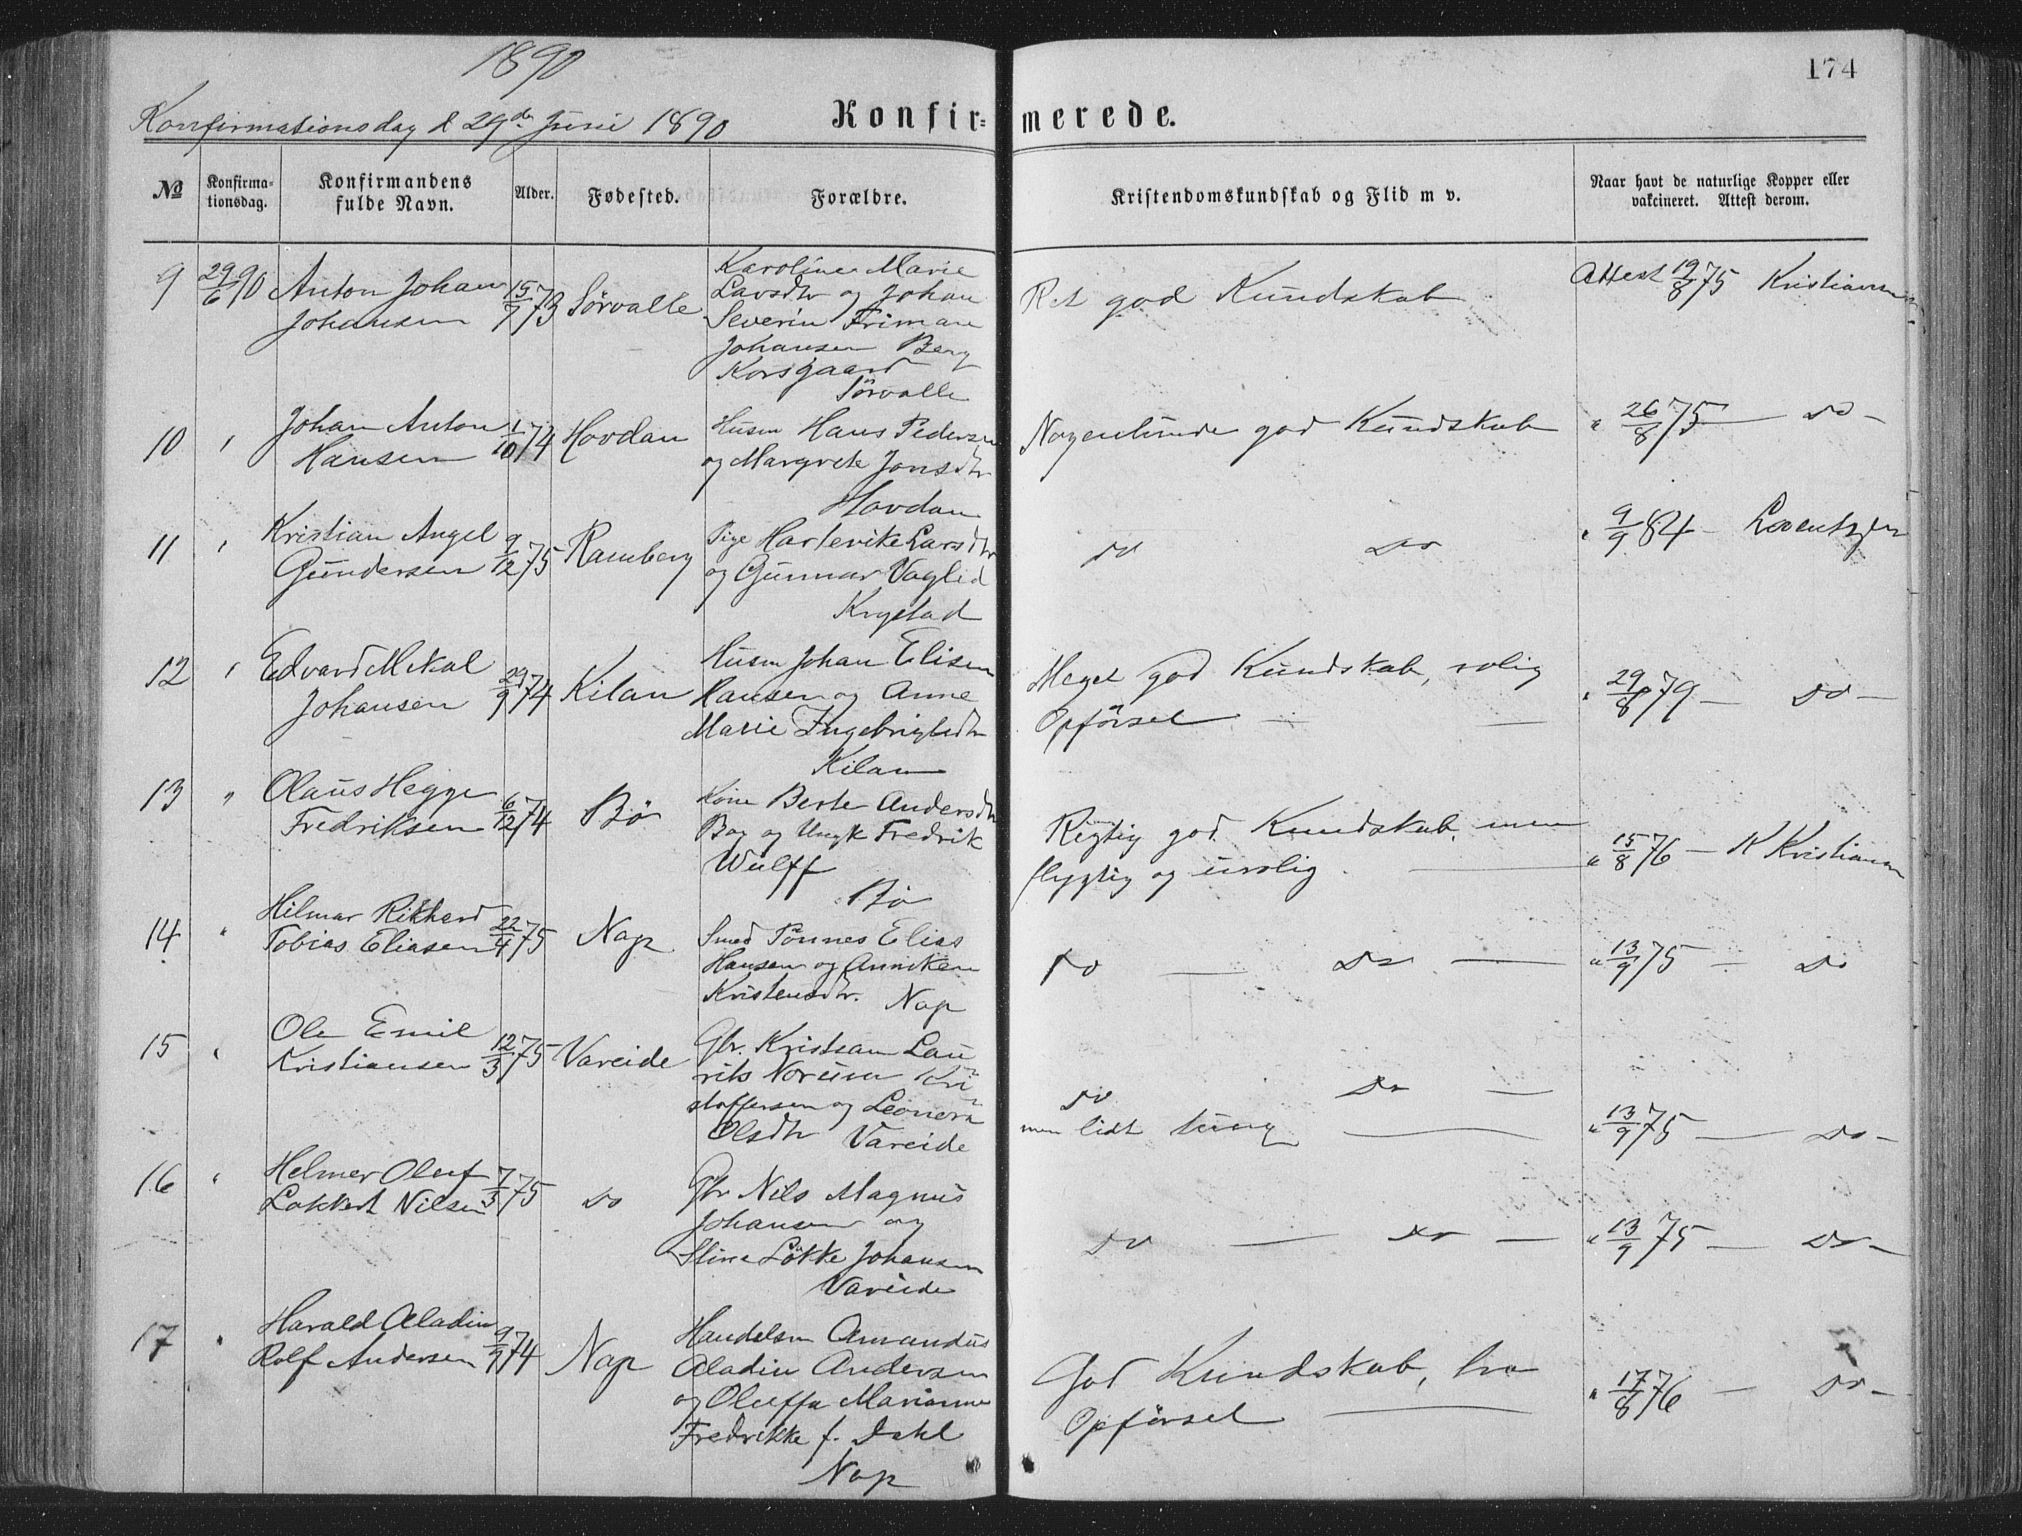 1890
174
Konfirmationsdag d 29de Juni 1890
Konfir=
merede.
No
Konfirma-
tionsdag.
Konfirmandens
fulde Navn.
Alder.
Fødested.
Forældre.
Kristendomskundskab og Flid m v.
Naar havt de naturlige Kopper eller
vakcineret. Attest derom.
9 29/6 90 Anton Johan
Johansen
15/7 73 Sørvalle
Karoline Marie
Larsdtr og Johan
Severin Friman
Johansen Berg
Korsgaard
Sørvalle
Ret god Kundskab
Attest 19/8 75 Kristiansen
10 " Johan Anton
Hansen
1/10 74 Hovdan
Husm Hans Pedersen
og Margrete Jonsdtr
Hovdan
Nogenlunde god Kundskab
" 26/8 75 — Do —
11 " Kristian Angel
Gundersen
9/12 75 Ramberg
Pige Hartevike Larsdtr
og Gunnar Vaglid
Krystad
Do Do
" 9/9 84 — Lorentzen
12 " Edvard Mikal
Johansen
29/9 74 Kilan
Husm Johan Elisen
Hansen og Anne
Marie Ingebrigtsdtr
Kilan
Meget god Kundskab, rolig
Opførsel — —
" 29/8 79 — Do —
13 " Olaus Hegge
Fredriksen
6/12 74 Bø
Kone Berte Andersdtr
Bag og Ungk Fredrik
Wulff
Bø
Rigtig god Kundskab, men
flygtig og urolig. —
" 15/8 76 — K Kristiansen
14 " Hilmar Rikhard
Tobias Eliasen
22/4 75 Nap
Smed Tönnes Elias
Hansen og Anniken
Kristensdtr. Nap
Do — Do —
" 13/9 75 — Do
15 " Ole Emil
Kristiansen
12/3 75 Vareide
Gbr. Kristian Lau
rits Norum Kri
stoffersen og Leonora
Olsdtr Vareide
Do Do —
men lidt tung —
" 13/9 75 — Do —
16 " Helmer Oluf
Lokkert Nilsen
7/3 75 Do
Gbr Nils Magnus
Johansen og
Stina Løkke Johansen
Vareide
Do — Do —
" 13/9 75 — Do —
17 " Harald Aladin
Rolf Andersen
9/9 74 Nap
Handelsm Amandus
Aladin Andersen
og Oluffa Marianne
Fredrikke f. Dahl
Nap
God Kundskab, bra
Opførsel —
" 17/8 76 — Do —